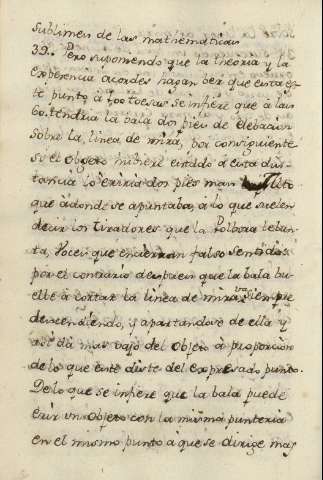 Sublimes de las mathematicas
39. Pero suponiendo que la theoria y la
experiencia acordes hagan ber que esta es
te punto à 100 toesas se infiere que à las
60. tendria la bala dos pies de elebacion
sobre la linea de mira, por consiguiente
si el objeto hubiere estado à esta dis-
tancia lo eriria dos pies mas alto
que adonde se apuntaba, a lo que suelen
decir los tiradores que la Polbora leban
ta, voces que encierran falso sentido:
por el contrario despues que la bala bu-
elbe à cortar la linea de mira va siempre
descendiendo, y apartandose de ella y
asi dà mas vajo del objeto à proporcion
de lo que este diste del expresado punto.
De lo que se infiere que la bala puede
erir un objeto con la misma punteria
en el mismo punto a que se dirige mas